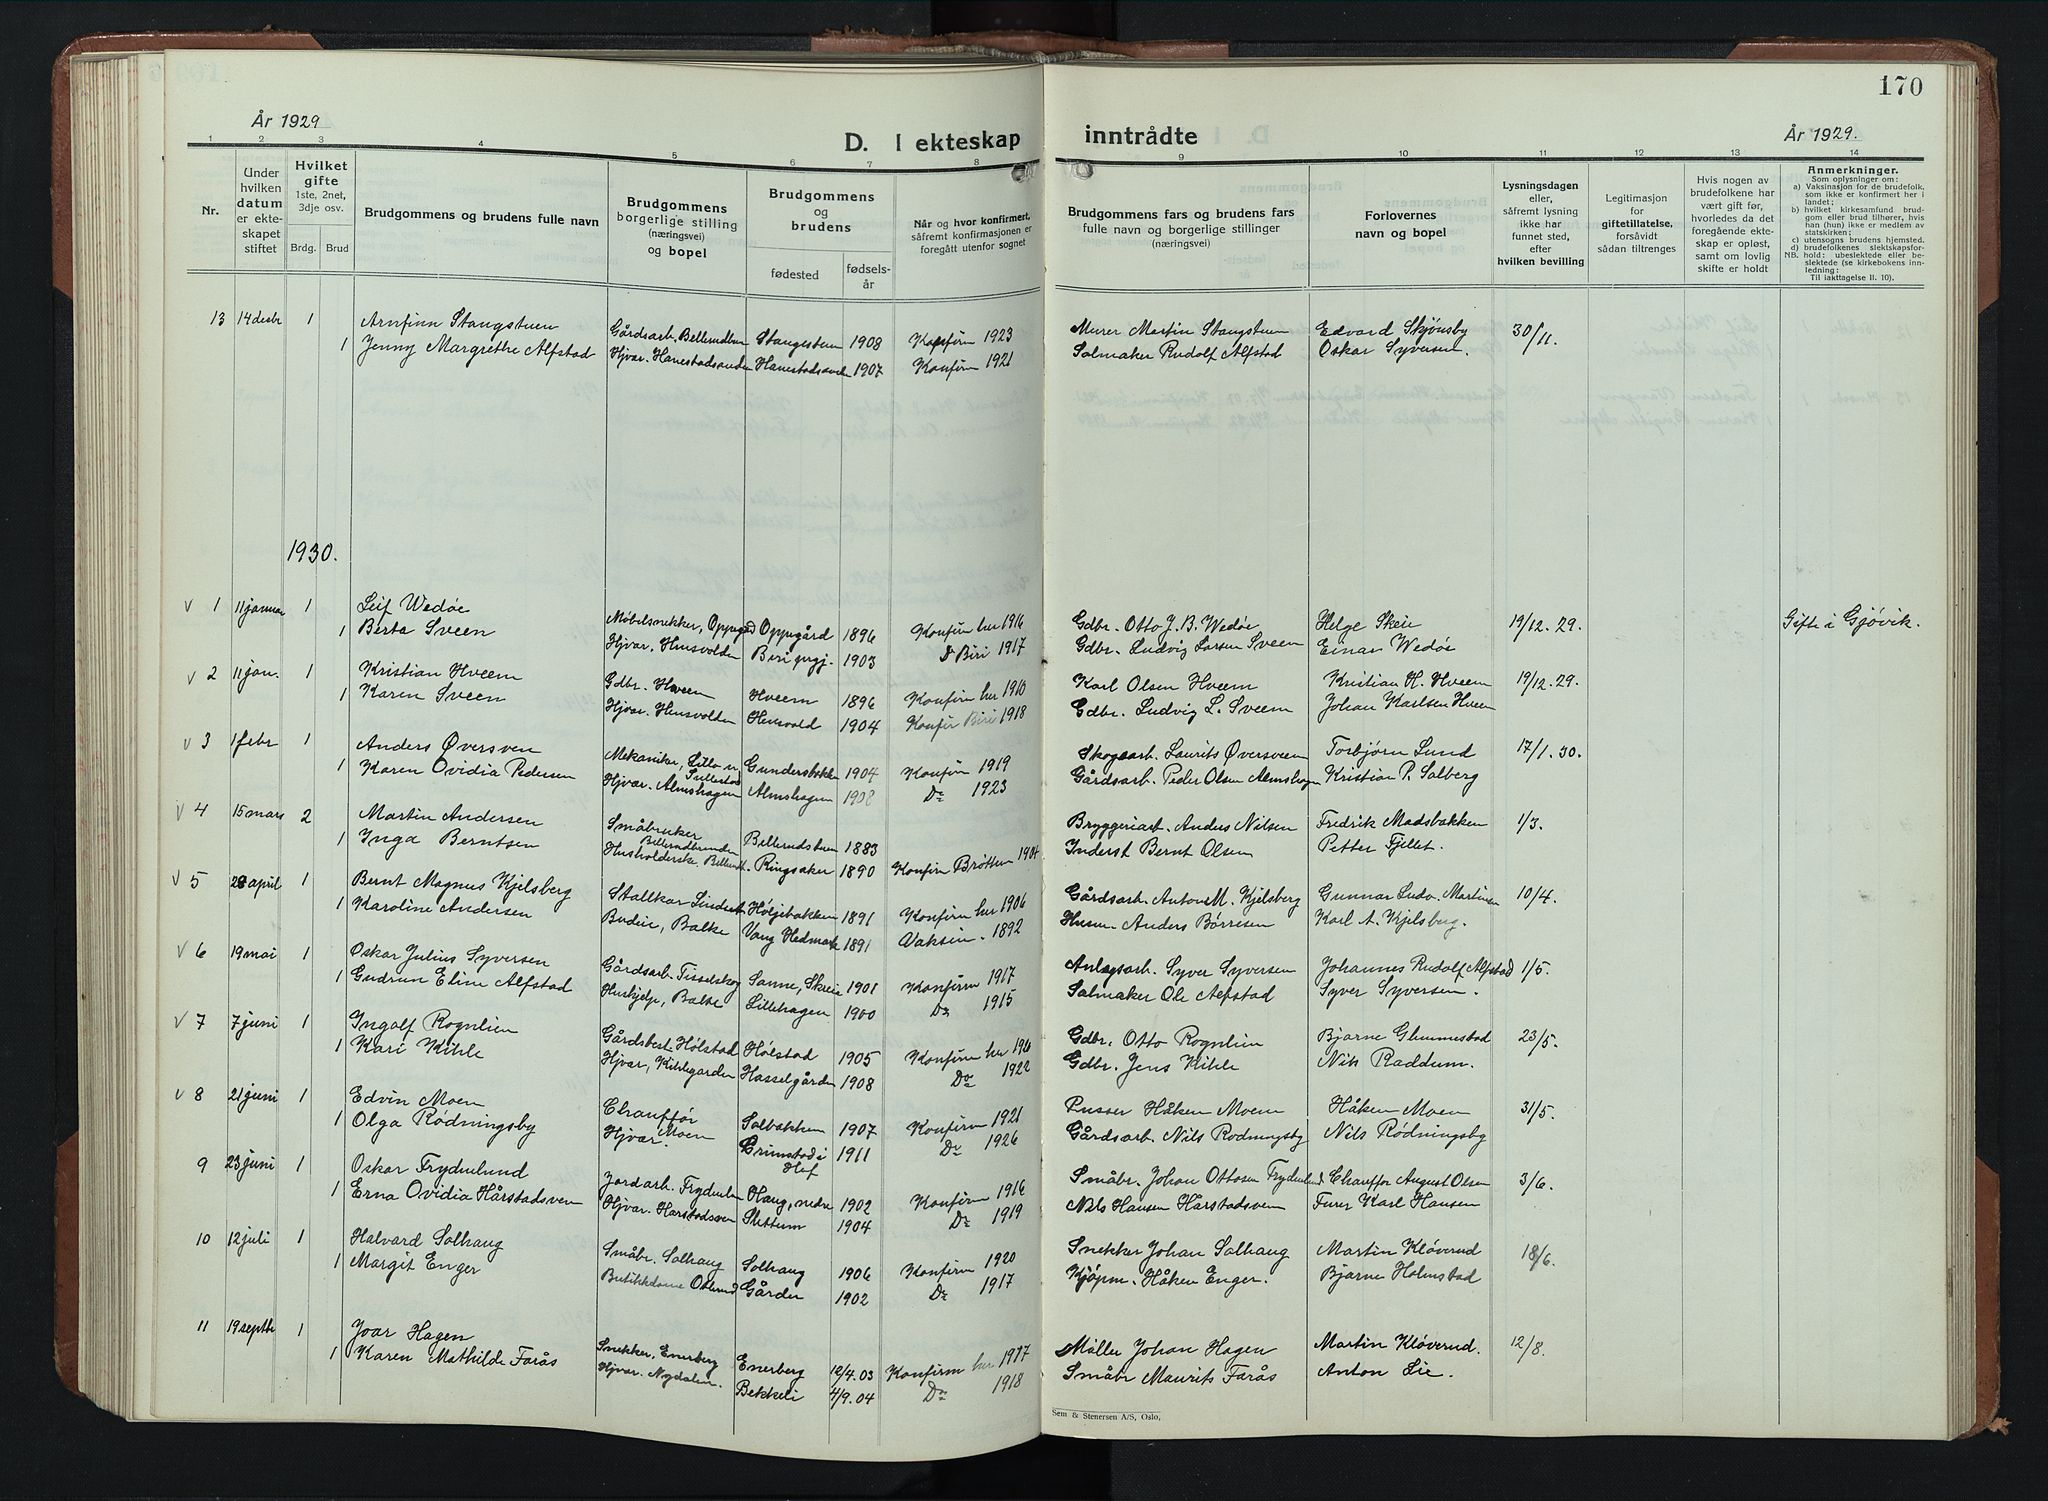 170
År 1929
År 1929.
D. I ekteskap inntrådte
1 2 3 4 5 6 7 8 9 10 11 12 13 14
Nr.
Under hvilken datum er ekteskapet stiftet
Hvilket gifte 1ste, 2net, 3dje osv.
Brdg. Brud
Brudgommens og brudens fulle navn
Brudgommens borgerlige stilling (næringsvei) og bopel
Brudgommens og brudens
fødested
fødselsår
Når og hvor konfirmert, såfremt konfirmasjonen er foregått utenfor sognet
Brudgommens fars og brudens fars fulle navn og borgerlige stillinger (næringsvei)
Forlovernes navn og bopel
Lysningsdagen eller, såfremt lysning ikke har funnet sted, efter hvilken bevilling
Legitimasjon for giftetillatelse, forsåvidt sådan tiltrenges
Hvis nogen av brudefolkene har vært gift før, hvorledes da det foregående ekteskap er opløst, samt om lovlig skifte er holdt
Anmerkninger.
Som oplysninger om:
a) Vaksinasjon for de brudefolk, som ikke er konfirmert her i landet;
b) hvilket kirkesamfund brudgom eller brud tilhører, hvis han (hun) ikke er medlem av statskirken;
c) utensogns brudens hjemsted.
d) brudefolkenes slektskapsforhold: ubeslektede eller beslektede (se kirkebokens innledning:
NB.
Til iakttagelse II. 10).
13 14 desbr 1 Arnfinn Stangstuen Gårdsarb. Stangstuen 1908 Konfirm 1923 Murer Martin Stangstuen Edvard Skjønsby 30/11.
1 Jenny Margrethe Alfstad Hjvar. Hanestadsanden Hanestadsanden 1907 Konfirm 1921 Salmaker Rudolf Alfstad Oskar Syversen.
1930.
v 1 11 januar 1 Leif Wedøe Møbelsnekker, Oppegård Oppegård 1896 Konfirm her 1916 Gdbr. Otto J. B. Wedøe Helge Skeie 19/12. 29. Gifte i Gjøvik.
1 Berta Sveen Hjvar. Hensvolden Biri prgj. 1903 Do Biri 1917 Gdbr. Ludvig Larsen Sveen Einar Wedøe
v 2 11 jan. 1 Kristian Hveem Gdbr. Hveem Hveem 1896 Konfirm her 1910 Karl Olsen Hveem Kristian H. Hveem 19/12. 29.
1 Karen Sveen Hjvar. Hensvolden Hensvold 1904 Konfir Biri 1918 Gdbr. Ludvig L. Sveem Johan Karlsen Hveem
v 3 1 febr 1 Anders Øversven Mekaniker, Gundersbakken 1904 Konfirm 1919 Skogsarb. Laurits Øversveen Torbjørn Lund 17/1. 30.
1 Karen Ovidia Pedersen Hjvar. Almshagen Almshagen 1908 Do 1923 Gårdsarb. Peder Olsen Almshagen Kristian P. Solberg
v 4 15 mars 2 Martin Andersen Småbruker Billerudbrunden Billerudstuen 1883 Bryggeriarb. Anders Nilsen Fredrik Madsbakken 1/3.
1 Inga Berntsen Husholderske Ringsaker 1890 Konfirm Brøttum 1904 Inderst Bernt Olsen Petter Fjellet.
v 5 28 april 1 Bernt Magnus Kjelsberg Stallkar Høljebakken 1891 Konfirm her 1906 Gårdsarb. Anton M. Kjelsberg Gunnar Ludv. Martinsen 10/4.
1 Karoline Andersen Budeie, Balke Vang Hedmark 1891 Vaksin. 1892 Husm. Anders Børresen Karl A. Kjelsberg.
v 6 19 mai 1 Oskar Julius Syversen Gårdsarb. Tisselskog Sanne, Skreia 1901 Konfirm 1917 Anlegsarb. Syver Syversen Johannes Rudolf Alfstad 1/5.
1 Gudrun Eline Alfstad Huskjelp, Balke Lillehagen 1900 Do 1915 Salmaker Ole Alfstad Syver Syversen.
v 7 7 juni 1 Ingolf Rognlien Gårdsbest. Hølstad Hølstad 1905 Konfirm her 1920 Gdbr. Otto Rognlien Bjarne Glemmestad 23/5.
1 Kari Kihle Hjvar, Kihlegarden Hasselgården 1908 Do 1922 Gdbr. Jens Kihle Nils Raddum.
v 8 21 juni 1 Edvin Moen Chauffør Moen Solbakken 1907 Konfirm 1921 Pusser Håken Moen Håken Moen 31/5.
1 Olga Rødningsby Hjvar Grimstad i Hof 1911 Do 1926 Gårdsarb. Nils Rødningsby Nils Rødningsby
9 23 juni 1 Oskar Frydenlund Jordarb. Frydenlun Haug, nedre 1902 Konfirm 1916 Småbr. Johan Ottosen Frydenlund Chauffør August Olsen 3/6.
1 Erna Ovidia Hårstadsven Hjvar. Harstadsven Slettum 1904 Do 1919 Nils Hansen Hårstadsven Furer Karl Hansen
10 12 juli 1 Halvard Solhaug Småbr. Solhaug Solhaug 1906 Konfirm 1920 Snekker Johan Solhaug Martin Kløverud 18/6.
1 Margit Enger Butikkdame Gården 1902 Do 1917 Kjøpm. Håken Enger. Bjarne Holmstad
11 19 septbr 1 Joar Hagen Snekker, Enerberg Enerberg 12/4. 03 Konfirm her 1917 Møller Johan Hagen Martin Kløverud. 12/8.
1 Karen Mathilde Farås Hjvar. Nydalen. Bekkeli 4/9. 04 Do 1918 Småbr Maurits Farås Anton Lie.
Sem & Stenersen A/S, Oslo.